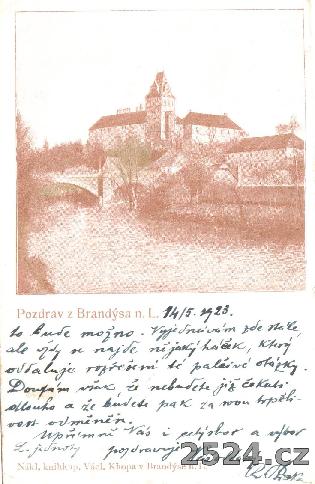 Pozdrav z Brandýsa n. L. 14/5 1923.
to bude možno. Vyjednávám zde stále,
ale vždy se najde nějaký háček, který
oddaluje rozřešení té palčivé otázky.
Doufám však že nebudete již čekati
dlouho a že budete pak za svou trpěli-
vost odměněn.
Upřímně Vás i celý sbor a výbor
L. jednoty pozdravuje
Nákl. knihkup. Václ. Khopa v Brandýse n. L.
2524.cz